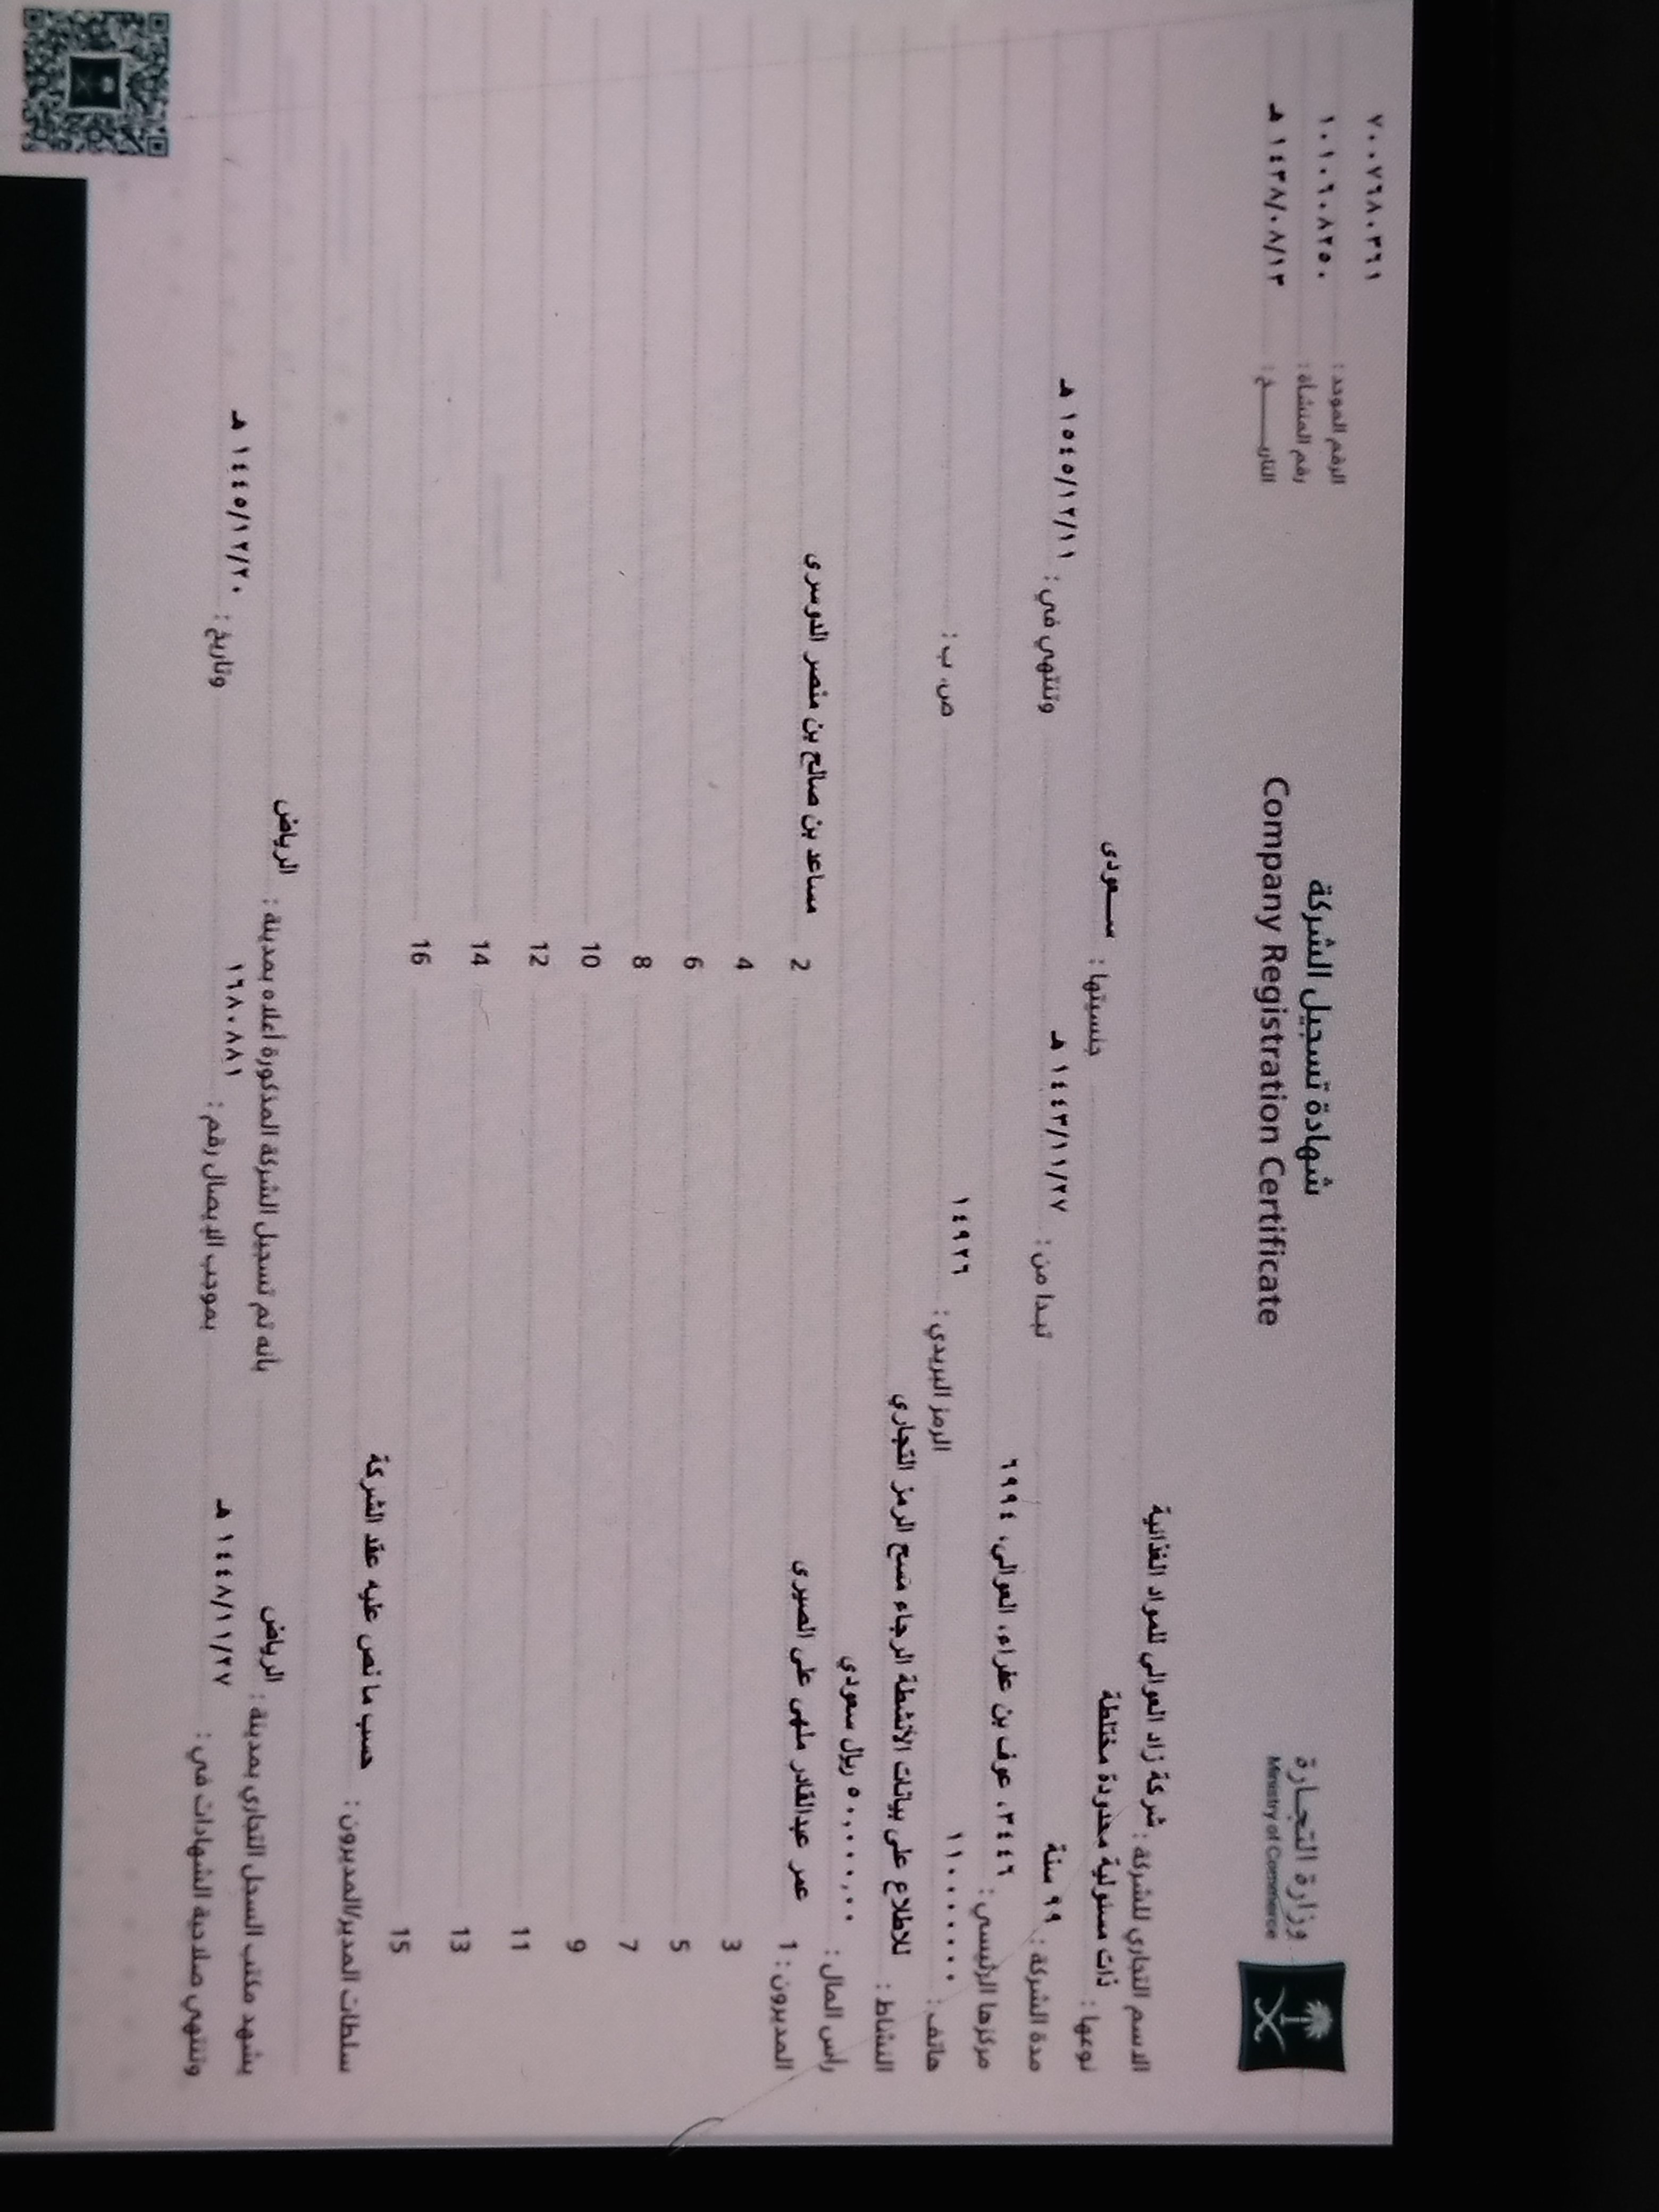 وزارة التجارة
Ministry of Commerce
شهادة تسجيل الشركة
Company Registration Certificate
الرقم الموحد : ٧٠٠٧٩٨٠٣٦١
رقم المنشأة : ١٠١٠٦٠٨٢٥٠
التاريــــــخ : ١٤٣٨/٠٨/١٣ هـ
الاسم التجاري للشركة : شركة زاد العوالي للمواد الغذائية
نوعها : ذات مسئولية محدودة مختلطة جنسيتها : سـعودى
مدة الشركة : ٩٩ سنة تبدا من : ١٤٤٣/١١/٢٧ هـ وتنتهي في : ١٥٤٥/١٢/١١ هـ
مركزها الرئيسي : ٣٤٤٦، عوف بن عفراء، العوالي، ٦٩٩٤
هاتف : ١١٠٠٠٠٠٠ الرمز البريدي : ١٤٩٢٦ ص. ب :
النشاط : للاطلاع على بيانات الأنشطة الرجاء مسح الرمز التجاري
رأس المال : ٥٠,٠٠٠,٠٠ ريال سعودي
المديرون : 1 عمر عبدالقادر ملهى على الصيرى 2 مساعد بن صالح بن منصر الدوسرى
3 4
5 6
7 8
9 10
11 12
13 14
15 16
سلطات المدير/المديرون : حسب ما نص عليه عقد الشركة
يشهد مكتب السجل التجاري بمدينة : الرياض بأنه تم تسجيل الشركة المذكورة أعلاه بمدينة : الرياض
وتنتهي صلاحية الشهادات في : ١٤٤٨/١١/٢٧ هـ بموجب الإيصال رقم : ١٦٨٠٨٨١ وتاريخ : ١٤٤٥/١٢/٢٠ هـ